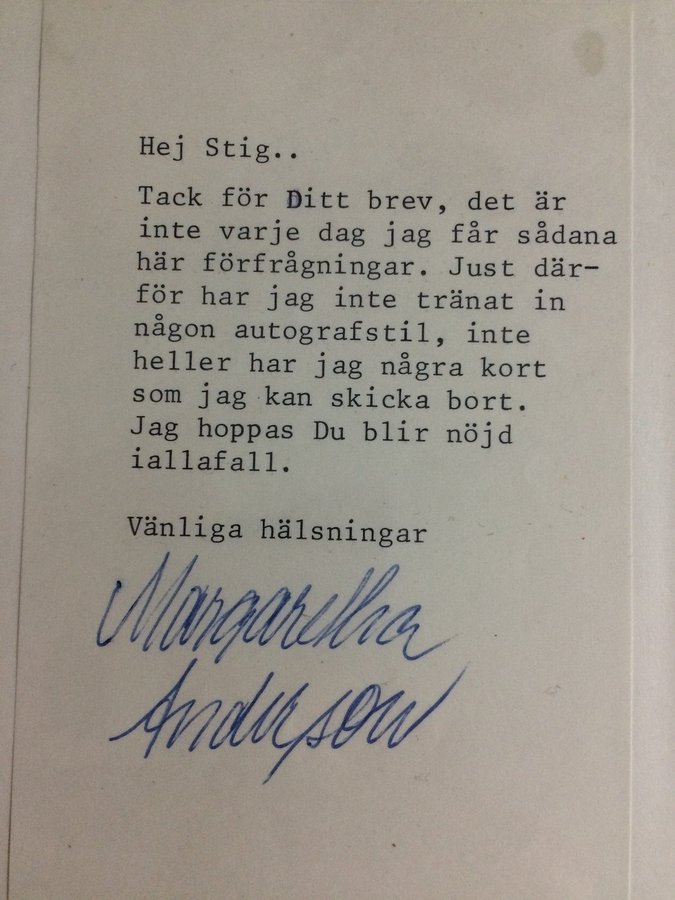 Hej Stig..
Tack för Ditt brev, det är
inte varje dag jag får sådana
här förfrågningar. Just där-
för har jag inte tränat in
någon autografstil, inte
heller har jag några kort
som jag kan skicka bort.
Jag hoppas Du blir nöjd
iallafall.
Vänliga hälsningar
Margaretha
Anderson